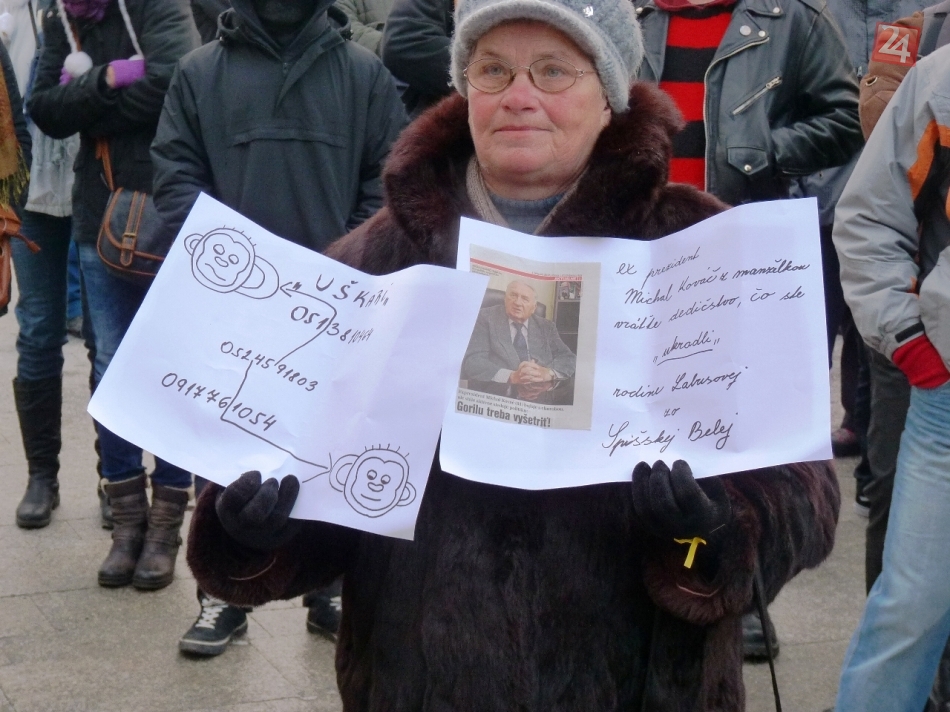 UŠKAŇ
051/38
0524591803
0917761054
Gorilu treba vyšetriť!
ex prezident
Michal Kováč z manželkou
vráťte dedičstvo, čo ste
"ukradli"
rodine Labusovej
zo
Spišskej Belej
24